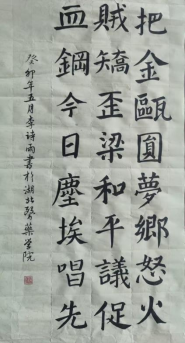 把金甌圓夢鄉怒火
賊矯歪梁和平議促
血鋼今日塵埃唱先
癸卯年五月李诗雨書於湖北醫藥学院